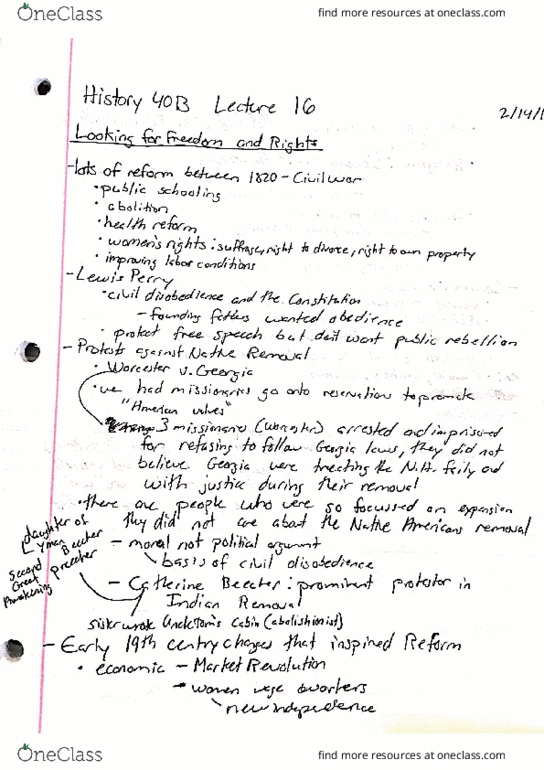 OneClass
find more resources at oneclass.com
History 40B Lecture 16
2/14/1
Looking for Freedom and Rights
-lots of reform between 1820 - Civil War
• public schooling
• abolition
• health reform
• women's rights: suffrage, right to divorce, right to own property
• improving labor conditions
- Lewis Perry
• civil disobedience and the Constitution
- founding fathers wanted obedience
• protect free speech but don't want public rebellion
- Protests against Native Removal
• Worcester v. Georgia
• we had missionaries go onto reservations to promote
"American values"
3 missionaries (Worcester) arrested and imprisoned
for refusing to follow Georgia laws, they did not
believe Georgia were treating the N.A. fairly and
with justice during their removal
• there are people who were so focussed on expansion
they did not care about the Native Americans removal
- moral not political argument
basis of civil disobedience
daughter of
Lyman Beecher
Second Great Awakening preacher
- Catherine Beecher: prominent protestor in
Indian Removal
sister wrote Uncle Tom's Cabin (abolishionist)
- Early 19th century changes that inspired Reform
• economic - Market Revolution
- women wage workers
new independence
OneClass
find more resources at oneclass.com